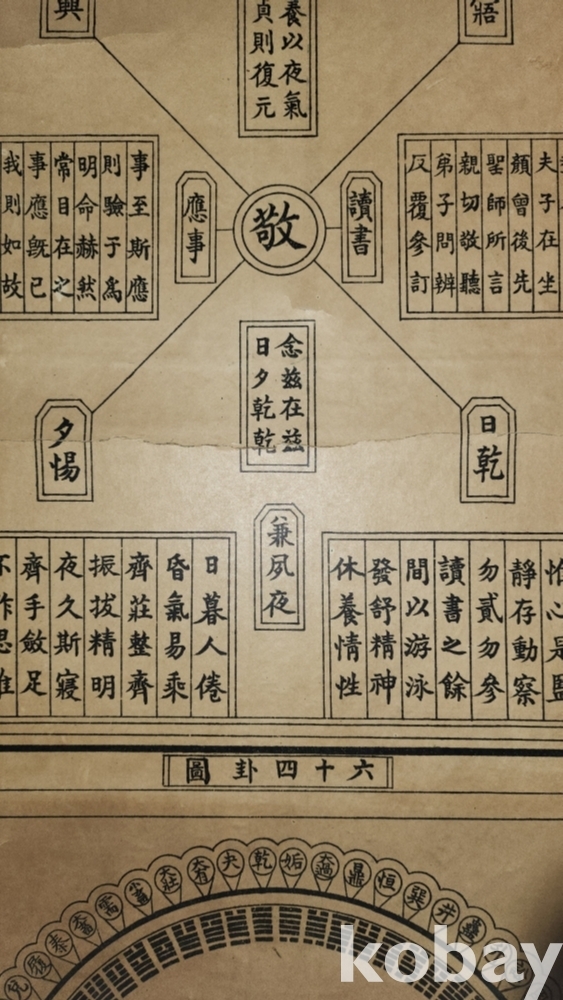 寤
養以夜氣
貞則復元
興
夫子在坐
顏曾後先
聖師所言
親切敬聽
弟子問辨
反覆參訂
讀書
敬
應事
事至斯應
則驗于爲
明命赫然
常目在之
事應旣已
我則如故
念玆在玆
日夕乾乾
日乾
夕惕
兼夙夜
惟心是監
靜存動察
勿貳勿參
讀書之餘
間以游泳
發舒精神
休養情性
日暮人倦
昏氣易乘
齊莊整齊
振拔精明
夜久斯寢
齊手斂足
不作思惟
六十四卦圖
蠱
井
巽
恒
鼎
大過
姤
乾
夬
大有
大壯
小畜
需
大畜
泰
履
兌
kobay